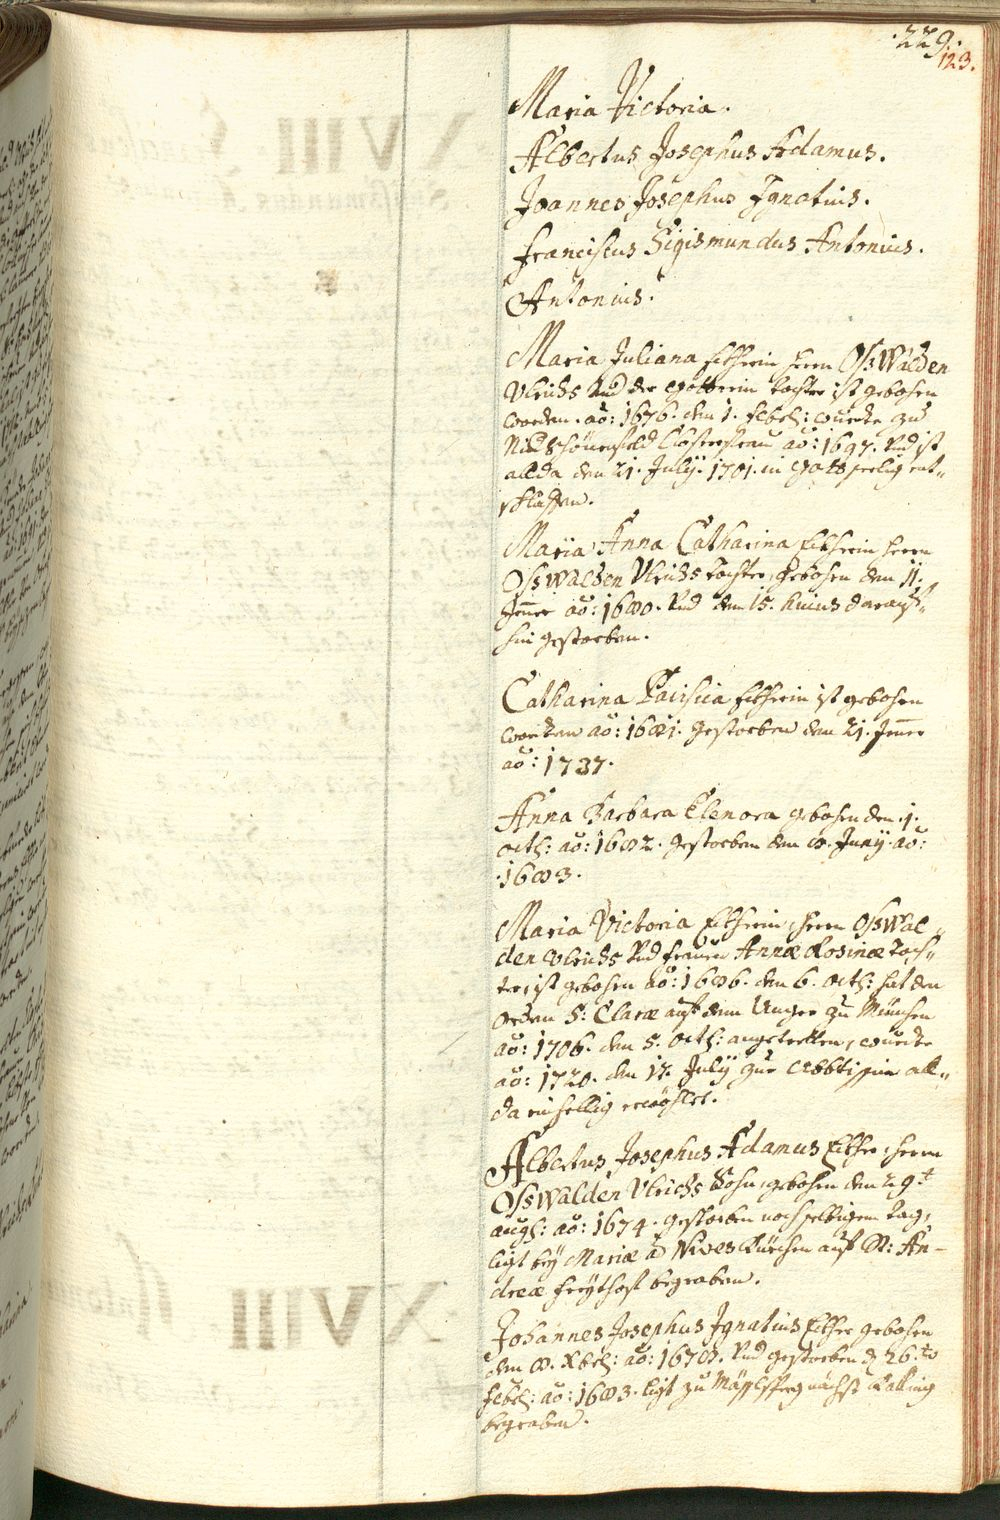 .229.
123.
Maria Victoria.
Albertus Josephus Adamus.
Joannes Josephus Ignatius.
Franciscus Sigismundus Antonius.
Antonius.
Maria Juliana herrn Osswalden
Ulrichs Und der tochter ist gebohren
worden. aõ: 1676. den 1. febr: wurde zu
Nidschönenfeld Closterfrau aõ: 1697. Und ist
allda den 21. July. 1701. in Gott seelig ent-
schlaffen.
Maria Anna Catharina herrn
Osswalden Ulrichs tochter, gebohren den 11.
Jenner aõ: 1680. Und den 15. huius darauf-
hin gestorben.
Catharina ist gebohren
worden aõ: 1681. gestorben den 21. Jenner
aõ: 1737.
Anna Barbara Elenora gebohren den .1.
octb: aõ: 1682. gestorben den 8. Juny. aõ:
.1683.
Maria Victoria herrn Osswal-
den Ulrichs Und frauen Annæ Rosinæ toch-
ter, ist gebohren aõ: 1686. den 6. octb: hat den
orden S: Claræ auf dem Anger zu München
aõ: 1706. den 5. octb: angetretten, wurde
aõ: 1720. den 17. July zur Abbtissin all-
da einhellig erwöhlet.
Albertus Josephus Adamus herrn
Osswalden Ulrichs Sohn, gebohren den 29t
augs: aõ: 1674. gestorben noch selbigen tag,
ligt bey Mariæ ad Nives Kürchen auf St: An-
dreæ freythof begraben.
Johannes Josephus Ignatius gebohren
den 8. Xbr: aõ: 1678. Und gestorben d 26.to
febr: aõ: 1683. ligt zu nächst
begraben.